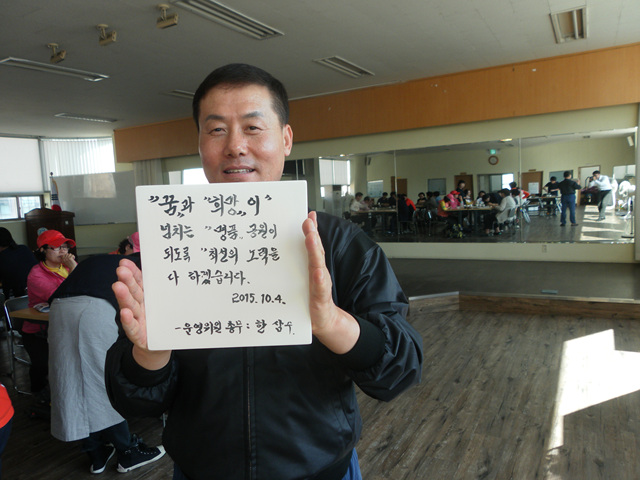 "꿈"과 "희망"이
넘치는 "명품" 공원이
되도록 "최선의 노력을
다 하겠습니다.
2015.10.4.
-운영위원 총무: 한 삼수